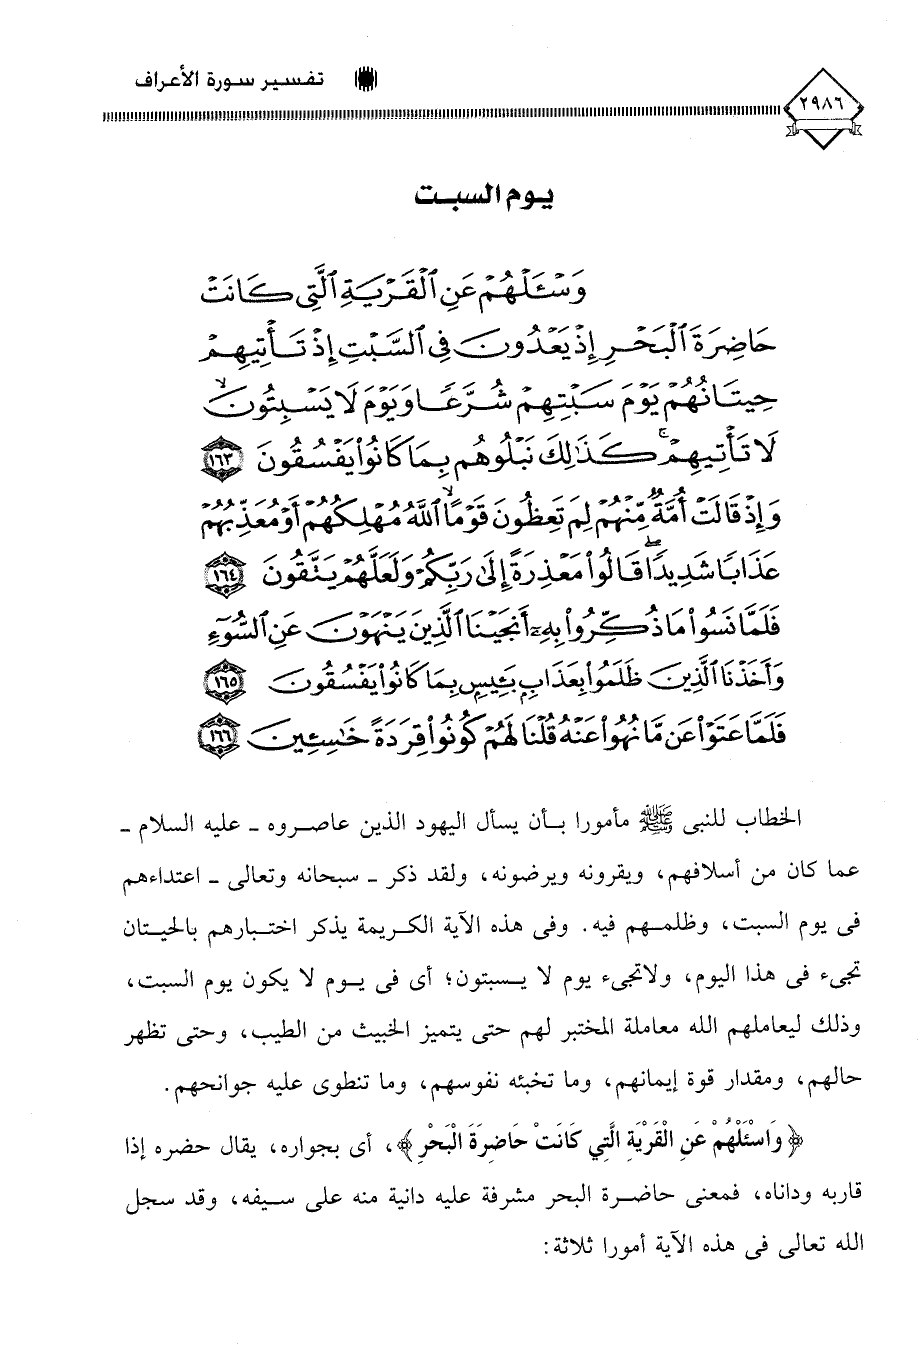 تفسير سورة الأعراف
٢٩٨٦
يوم السبت
وَسْـَٔلْهُمْ عَنِ ٱلْقَرْيَةِ ٱلَّتِى كَانَتْ
حَاضِرَةَ ٱلْبَحْرِ إِذْ يَعْدُونَ فِى ٱلسَّبْتِ إِذْ تَأْتِيهِمْ
حِيتَانُهُمْ يَوْمَ سَبْتِهِمْ شُرَّعًا وَيَوْمَ لَا يَسْبِتُونَ ۙ
لَا تَأْتِيهِمْ ۚ كَذَٰلِكَ نَبْلُوهُم بِمَا كَانُوا۟ يَفْسُقُونَ ١٦٣
وَإِذْ قَالَتْ أُمَّةٌ مِّنْهُمْ لِمَ تَعِظُونَ قَوْمًا ۙ ٱللَّهُ مُهْلِكُهُمْ أَوْ مُعَذِّبُهُمْ
عَذَابًا شَدِيدًا ۖ قَالُوا۟ مَعْذِرَةً إِلَىٰ رَبِّكُمْ وَلَعَلَّهُمْ يَتَّقُونَ ١٦٤
فَلَمَّا نَسُوا۟ مَا ذُكِّرُوا۟ بِهِۦٓ أَنجَيْنَا ٱلَّذِينَ يَنْهَوْنَ عَنِ ٱلسُّوٓءِ
وَأَخَذْنَا ٱلَّذِينَ ظَلَمُوا۟ بِعَذَابٍۭ بَـِٔيسٍۭ بِمَا كَانُوا۟ يَفْسُقُونَ ١٦٥
فَلَمَّا عَتَوْا۟ عَن مَّا نُهُوا۟ عَنْهُ قُلْنَا لَهُمْ كُونُوا۟ قِرَدَةً خَٰسِـِٔينَ ١٦٦
الخطاب للنبى ﷺ مأمورا بأن يسأل اليهود الذين عاصروه ـ عليه السلام ـ
عما كان من أسلافهم، ويقرونه ويرضونه، ولقد ذكر ـ سبحانه وتعالى ـ اعتداءهم
فى يوم السبت، وظلمهم فيه. وفى هذه الآية الكريمة يذكر اختبارهم بالحيتان
تجىء فى هذا اليوم، ولاتجىء يوم لا يسبتون؛ أى فى يوم لا يكون يوم السبت،
وذلك ليعاملهم الله معاملة المختبر لهم حتى يتميز الخبيث من الطيب، وحتى تظهر
حالهم، ومقدار قوة إيمانهم، وما تخبئه نفوسهم، وما تنطوى عليه جوانحهم.
﴿وَاسْئَلْهُمْ عَنِ الْقَرْيَةِ الَّتِي كَانَتْ حَاضِرَةَ الْبَحْرِ﴾، أى بجواره، يقال حضره إذا
قاربه وداناه، فمعنى حاضرة البحر مشرفة عليه دانية منه على سيفه، وقد سجل
الله تعالى فى هذه الآية أمورا ثلاثة: